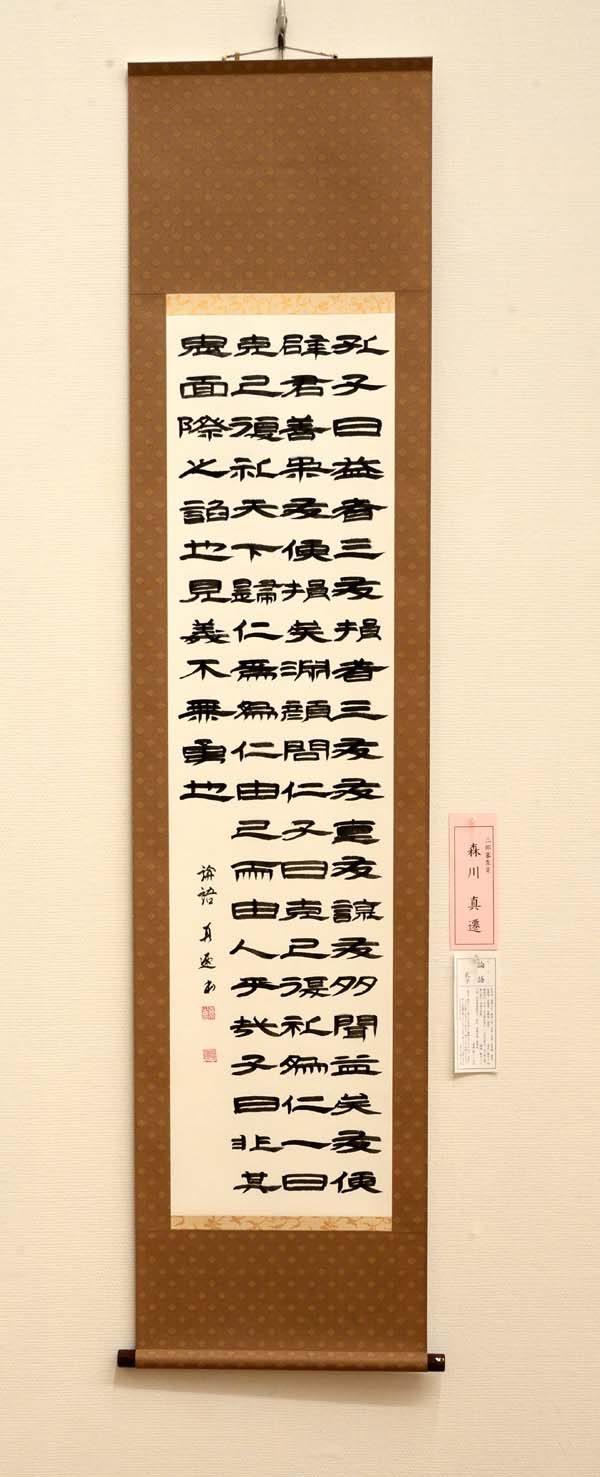 孔子曰益者三友損者三友友直友諒友多聞益矣友便
辟君善柔友便損矣淵顔問仁子曰克己復礼為仁一曰
克己復礼天下歸仁焉為仁由己而由人乎哉子曰非其
鬼面際之諂也見義不無勇也
論語 真遷書
森川 真遷
論語